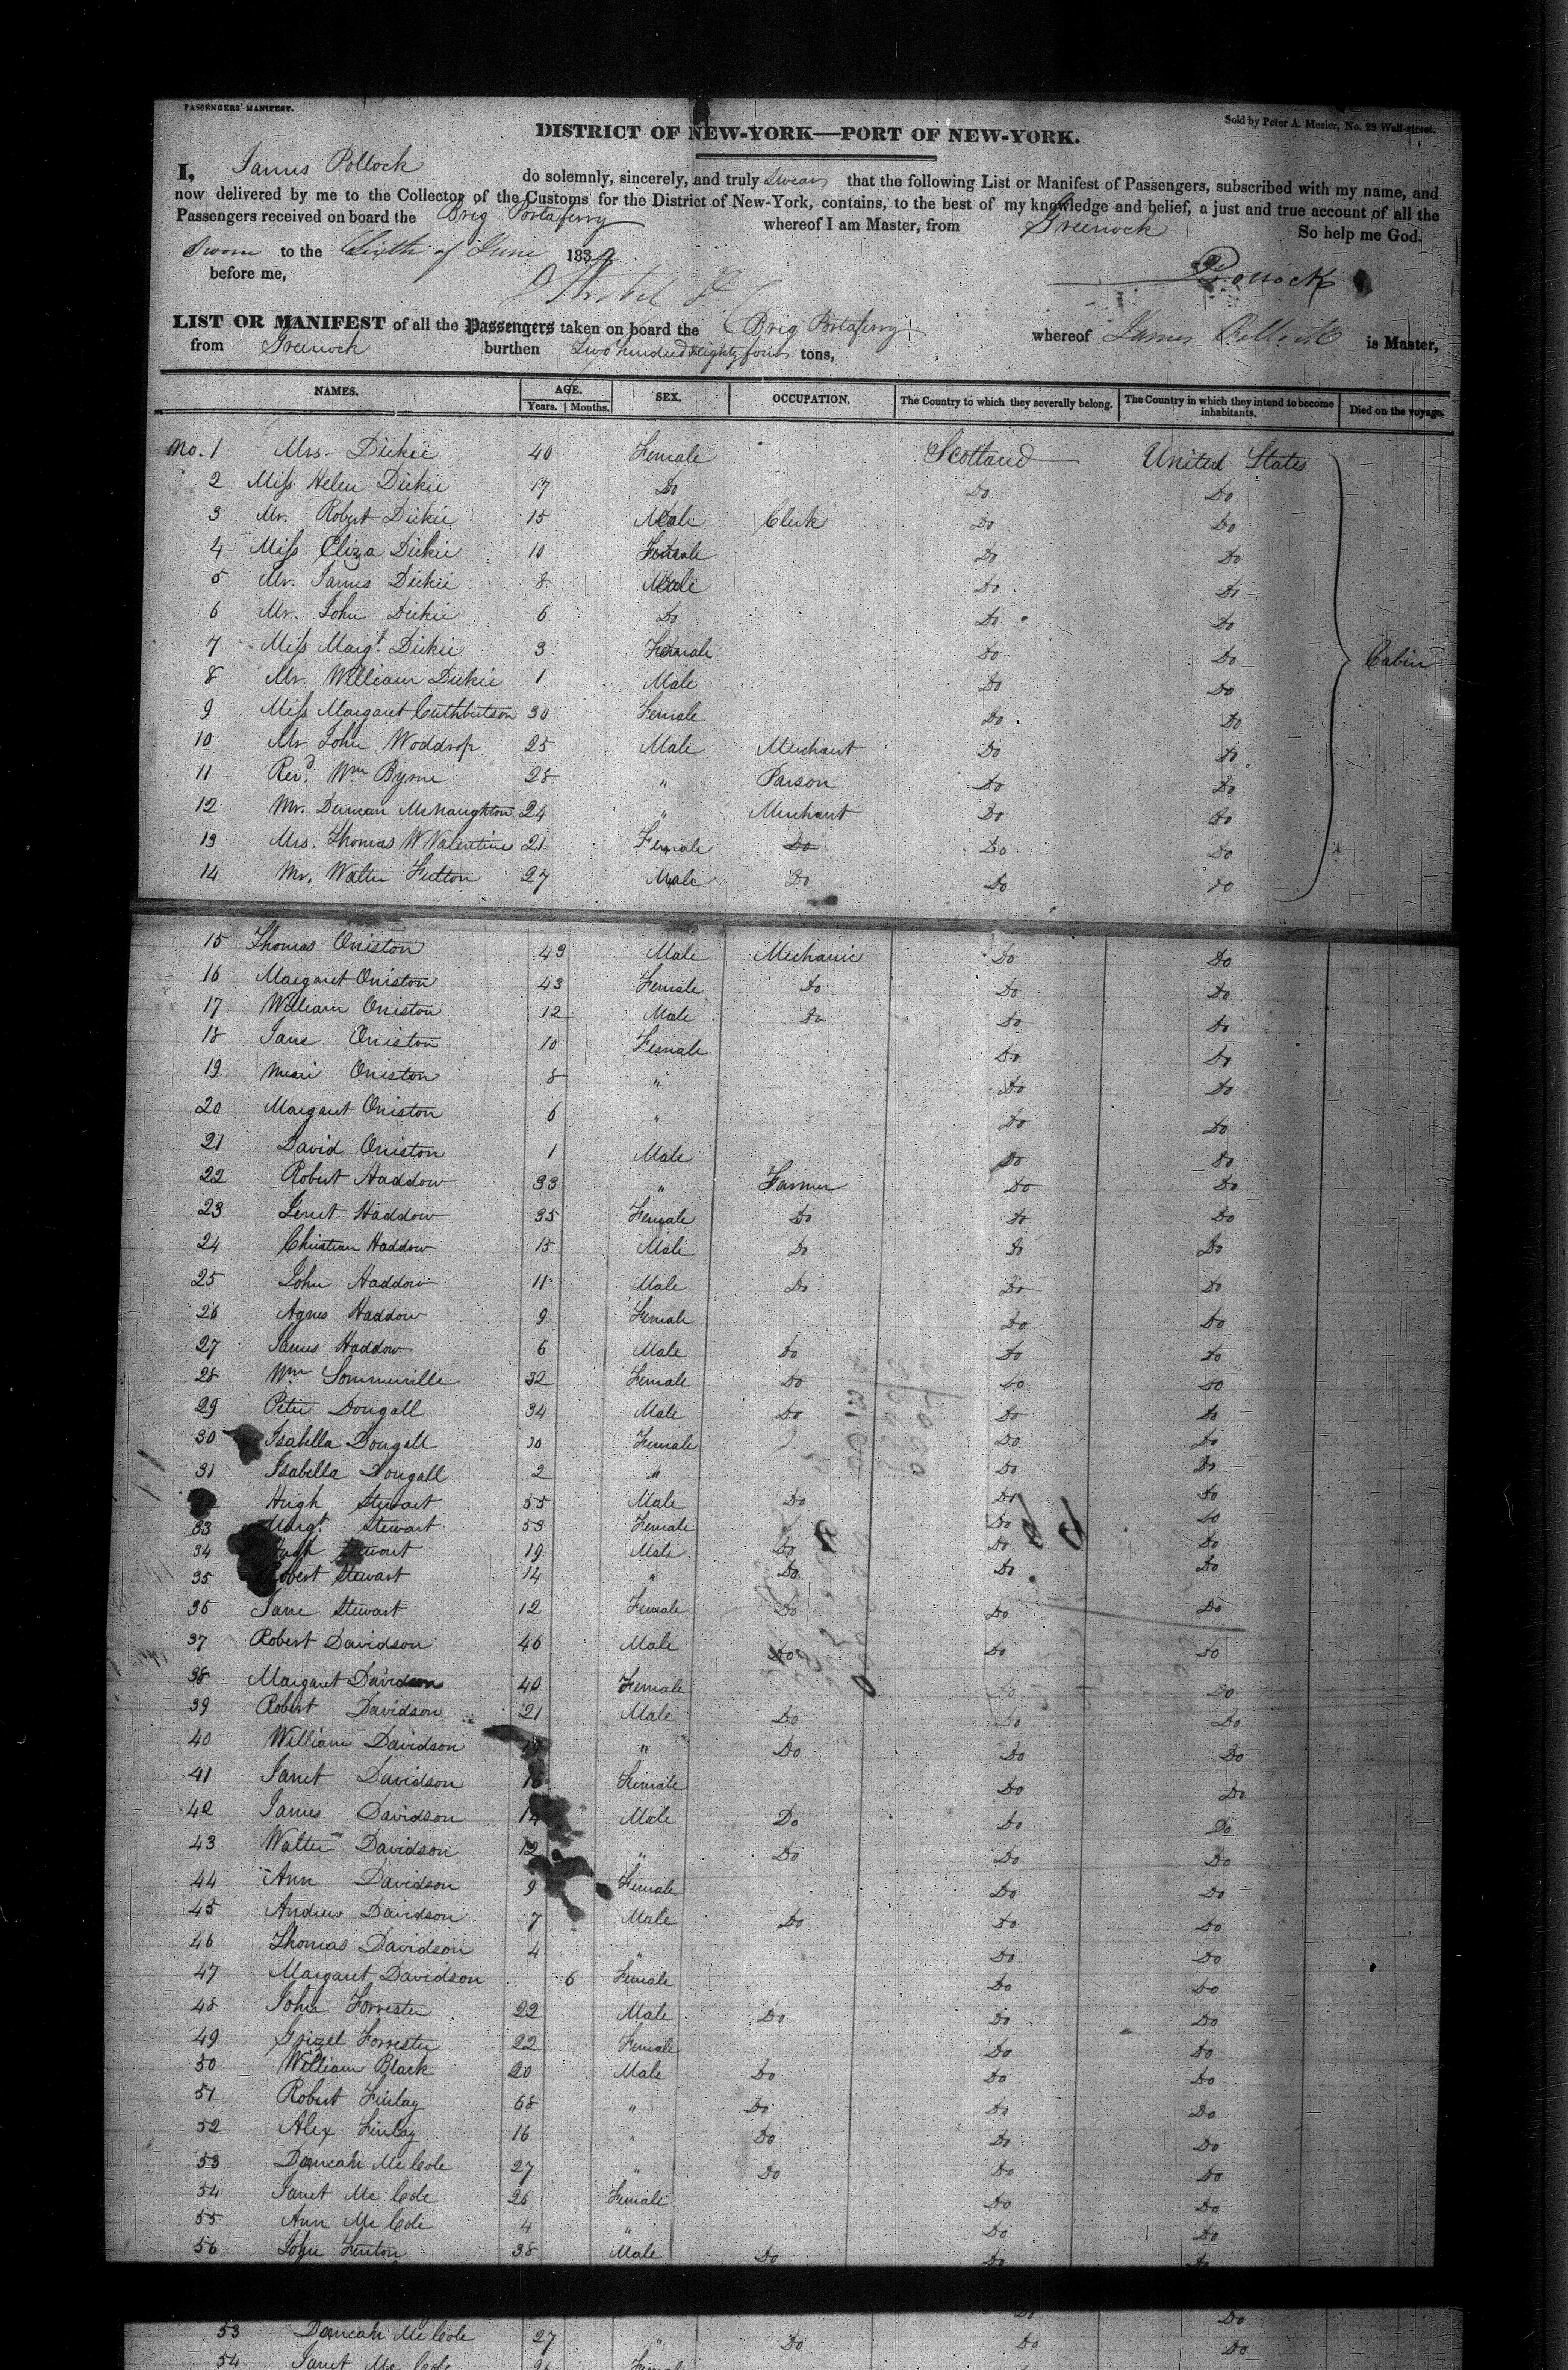 PASSENGERS' MANIFEST.
Sold by Peter A. Mesier, No. 28 Wall-street.
DISTRICT OF NEW-YORK—PORT OF NEW-YORK.
I, James Pollock do solemnly, sincerely, and truly swear that the following List or Manifest of Passengers, subscribed with my name, and
now delivered by me to the Collector of the Customs for the District of New-York, contains, to the best of my knowledge and belief, a just and true account of all the
Passengers received on board the Brig Portaferry whereof I am Master, from Greenock So help me God.
Sworn to the Sixth of June 1834
before me,
Pollock
LIST OR MANIFEST of all the Passengers taken on board the Brig Portaferry whereof James Pollock is Master,
from Greenock burthen Two hundred & eighty four tons,
NAMES. AGE. SEX. OCCUPATION. The Country to which they severally belong. The Country in which they intend to become inhabitants. Died on the voyage.
Years. Months.
No. 1 Mrs. Dickie 40 Female Scotland United States
2 Miss Helen Dickie 17 Do Do Do
3 Mr. Robert Dickie 15 Male Clerk Do Do
4 Miss Eliza Dickie 10 Female Do Do
5 Mr. James Dickie 8 Male Do Do
6 Mr. John Dickie 6 Do Do Do
7 Miss Margt. Dickie 3 Female Do Do Cabin
8 Mr. William Dickie 1 Male Do Do
9 Miss Margaret Cuthbertson 30 Female Do Do
10 Mr John Woddrop 25 Male Merchant Do Do
11 Revd. Wm Byrne 28 " Parson Do Do
12 Mr. Duncan McNaughton 24 " Merchant Do Do
13 Mrs. Thomas W Valentine 21 Female Do Do Do
14 Mr. Walter 27 Male Do Do Do
15 Thomas Oniston 43 Male Mechanic Do Do
16 Margaret Oniston 43 Female Do Do Do
17 William Oniston 12 Male Do Do Do
18 Jane Oniston 10 Female Do Do
19 Oniston 8 " Do Do
20 Margaret Oniston 6 " Do Do
21 David Oniston 1 Male Do Do
22 Robert Haddow 33 " Farmer Do Do
23 Jenet Haddow 35 Female Do Do Do
24 Christian Haddow 15 Male Do Do Do
25 John Haddow 11 Male Do Do Do
26 Agnes Haddow 9 Female Do Do
27 James Haddow 6 Male Do Do Do
28 Wm Sommerville 32 Female Do Do Do
29 Peter Dougall 34 Male Do Do Do
30 Isabella Dougall 30 Female Do Do
31 Isabella Dougall 2 " Do Do
Hugh Stewart 55 Male Do Do Do
33 Margt. Stewart 53 Female Do Do
34 Hugh Stewart 19 Male Do Do Do
35 Robert Stewart 14 " Do Do Do
36 Jane Stewart 12 Female Do Do Do
37 Robert Davidson 46 Male Do Do Do
38 Margaret Davidson 40 Female Do Do
39 Robert Davidson 21 Male Do Do Do
40 William Davidson " Do Do Do
41 Janet Davidson 16 Female Do Do
42 James Davidson 14 Male Do Do Do
43 Walter Davidson 12 " Do Do Do
44 Ann Davidson 9 Female Do Do
45 Andrew Davidson 7 Male Do Do Do
46 Thomas Davidson 4 " Do Do
47 Margaret Davidson 6 Female Do Do
48 John Forrester 22 Male Do Do Do
49 Grizel Forrester 22 Female Do Do
50 William Black 20 Male Do Do Do
51 Robert Finlay 68 " Do Do Do
52 Alex Finlay 16 " Do Do Do
53 Duncan McCole 27 " Do Do Do
54 Janet McCole 26 Female Do Do
55 Ann McCole 4 " Do Do
56 John Fenton 38 Male Do Do Do
Do Do
53 Duncan McCole 27 " Do Do Do
54 Janet McCole 26 Female